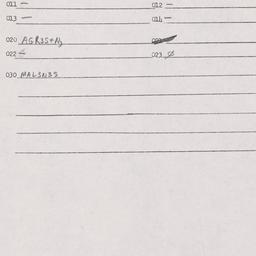 011 — 012 —
013 — 014 —
020 AGR35+N
022 023 ∅
030 MAL3N35